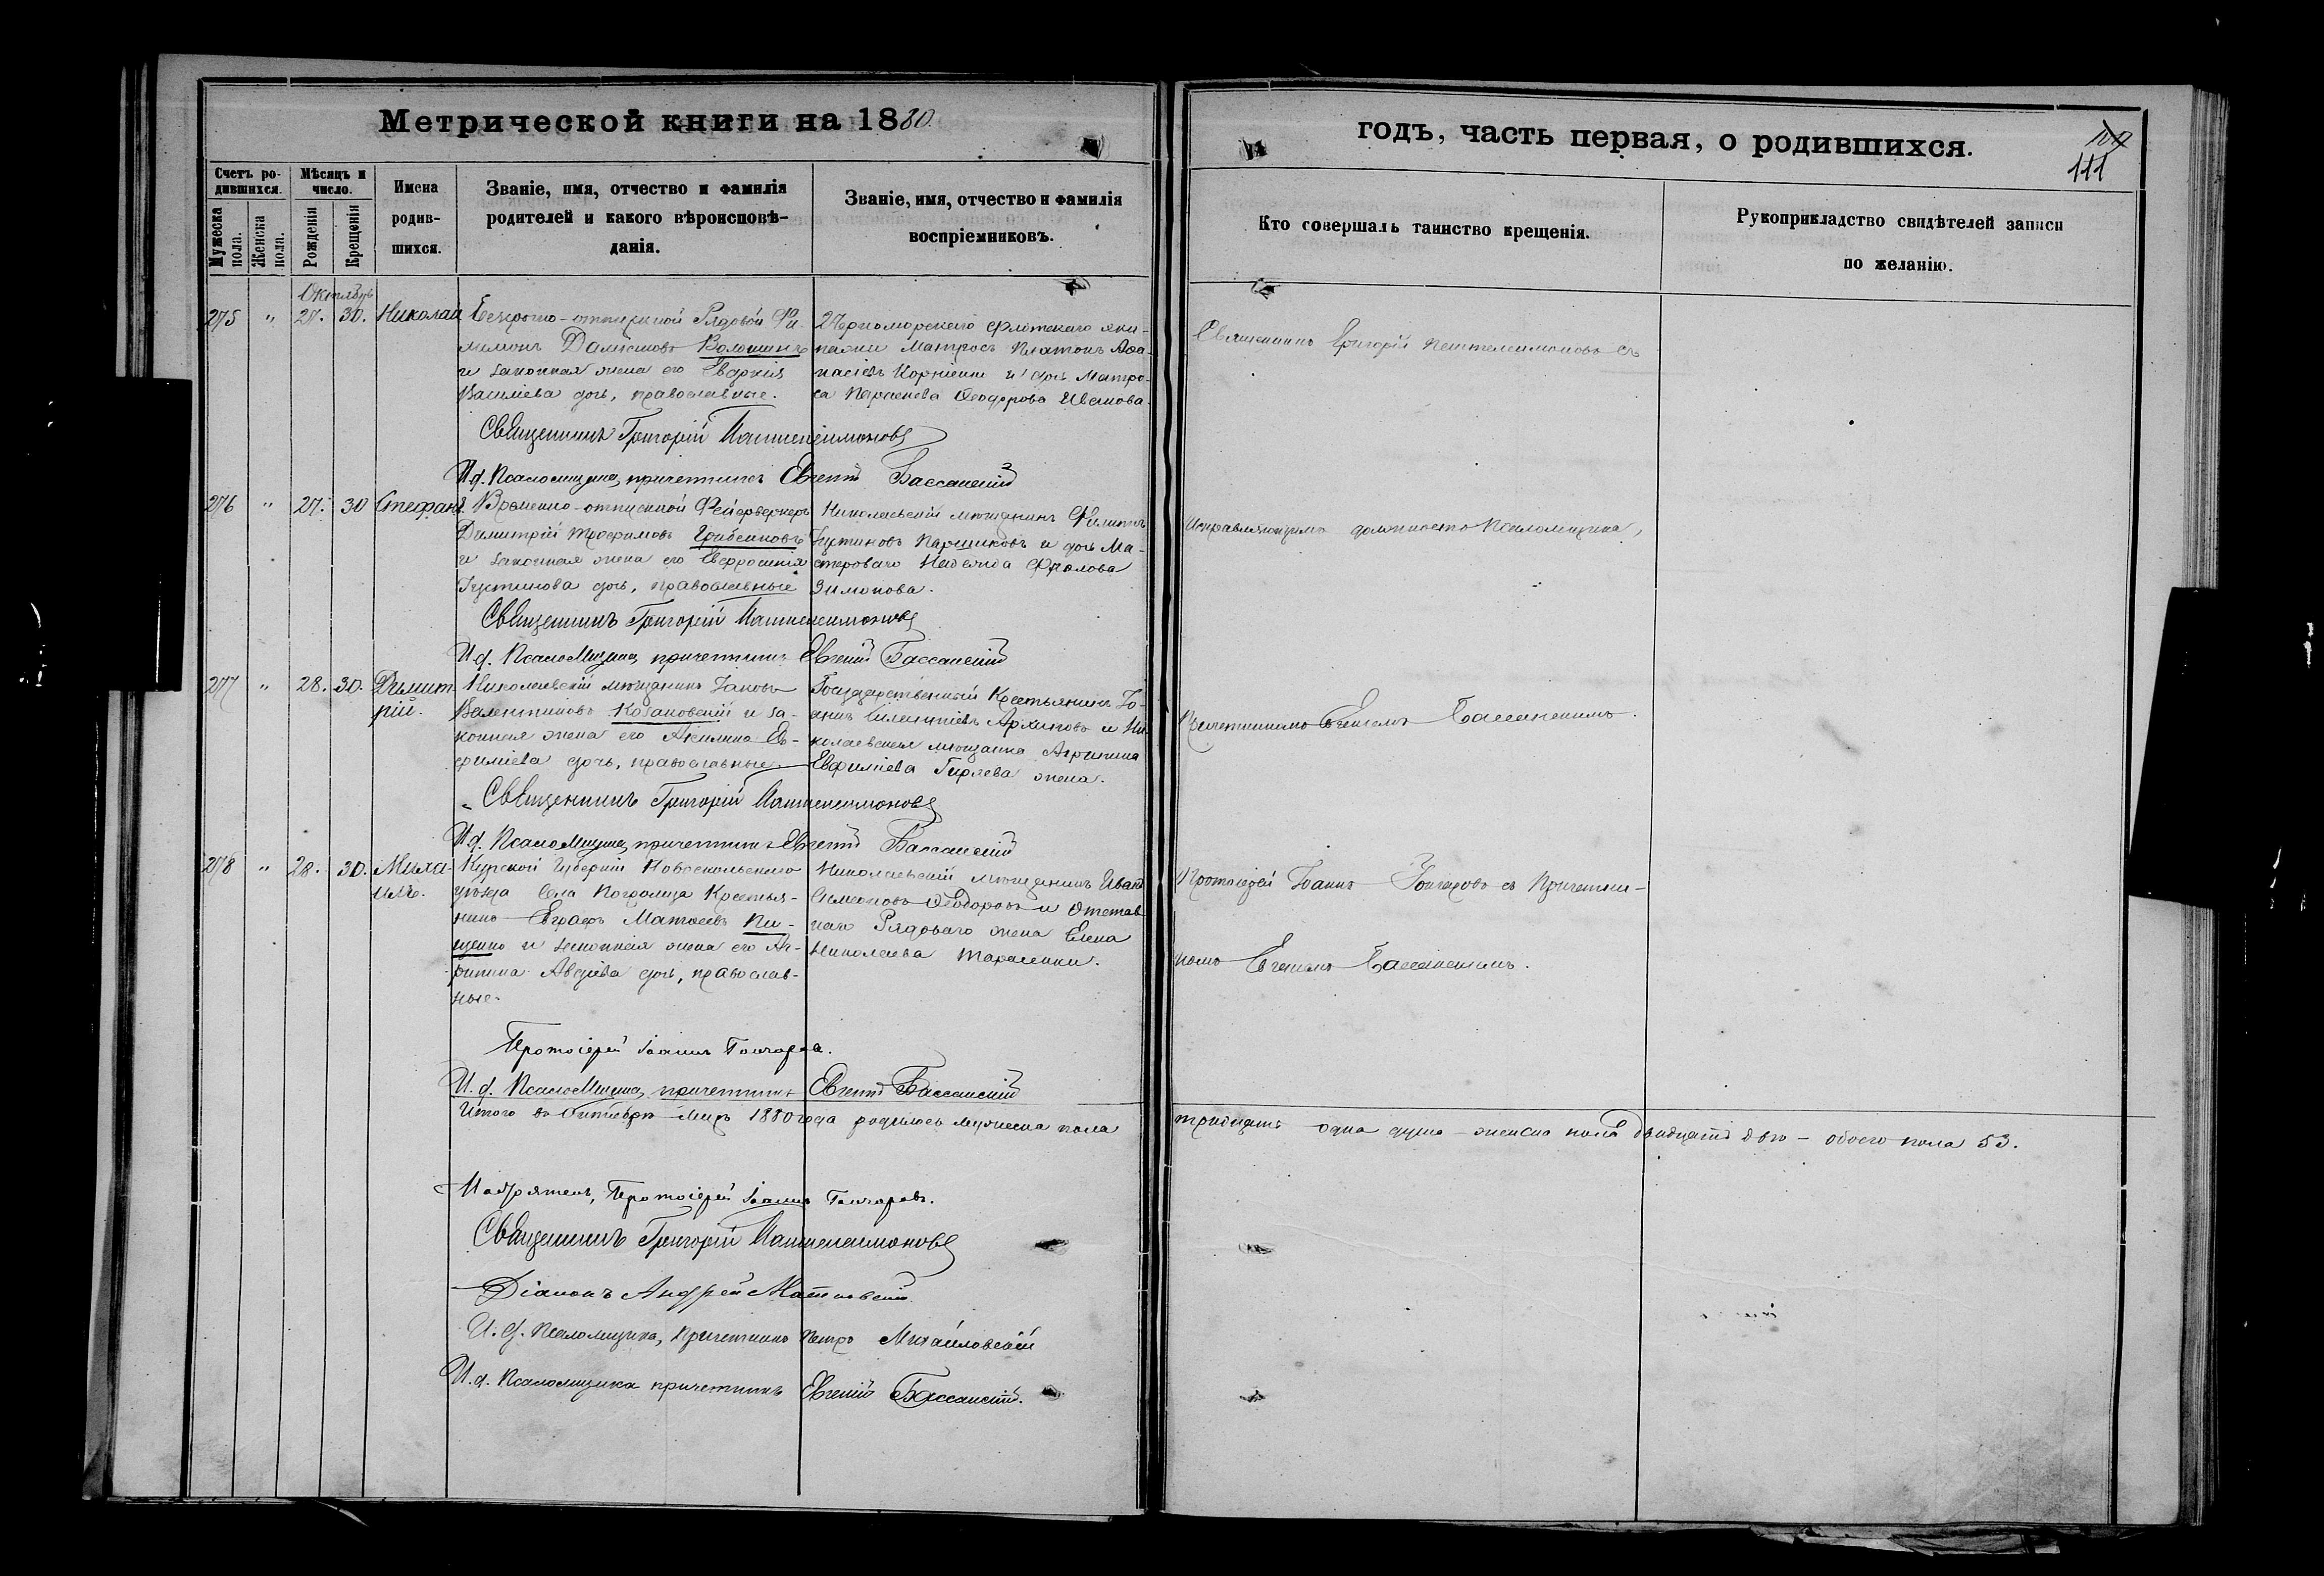 Метрической книги на 1880.
годъ, часть первая, о родившихся.
111
Счетъ ро-
дившихся.
Мужеска пола.
Женска пола.
Мѣсяцъ и
число.
Рожденія
Крещенія
Имена
родив-
шихся.
Званіе, имя, отчество и фамилія
родителей и какого вѣроисповѣ-
данія.
Званіе, имя, отчество и фамилія
воспріемниковъ.
Кто совершалъ таинство крещенія.
Рукоприкладство свидѣтелей записи
по желанію.
Октябрь
275 " 27. 30. Николай
Безсрочно-отпускной Рядовой Фи-
лимонъ Волошинъ
и законная жена его Евдокія
Василіева дочь, православные.
2 Черноморскаго флотскаго эки-
пажа Матросъ Платонъ Аѳа-
насіевъ Корніенко и дочь Матро-
са Ѳеодорова Иванова.
Священникъ Григорій Пантелеимоновъ съ
Священникъ Григорій Пантелеимоновъ
И.д. Псаломщика, причетникъ Евгеній Бассанскій
276 " 27. 30 Стефанъ
Временно-отпускной Фейерверкеръ
Димитрій Трофимовъ
и законная жена его Евфросинія
Іустинова дочь, православные
Николаевскій мѣщанинъ Филиппъ
Іустиновъ Паршиковъ и дочь Ма-
стероваго Надежда Фролова
Зимонова.
Исправляющимъ должность Псаломщика,
Священникъ Григорій Пантелеимоновъ
И.д. Псаломщика, причетникъ Евгеній Бассанскій
277 " 28. 30. Димит-
рій.
Николаевскій мѣщанинъ Іаковъ
Валентиновъ Козановскій и за-
конная жена его Акилина Ев-
фиміева дочь, православные.
Государственный Крестьянинъ Іо-
аннъ Архиповъ и Ни-
колаевская мѣщанка Агрипина
Евфиміева Гиряева жена.
Причетникомъ Евгеніемъ Бассанскимъ.
Священникъ Григорій Пантелеимоновъ
И.д. Псаломщика, причетникъ Евгеній Бассанскій
278 " 28. 30. Миха-
илъ.
Курской Губерніи Новооскольскаго
уѣзда Села Погромца Крестья-
нинъ Евграфъ Матвѣевъ Пи-
щенко и законная жена его Аг-
рипина Авдіева дочь, православ-
ные.
Николаевскій мѣщанинъ Иванъ
Симеоновъ Ѳеодоровъ и Отстав-
наго Рядоваго жена Елена
Николаева Тарасенки.
Протоіерей Іоаннъ Гончаровъ съ Причетни-
комъ Евгеніемъ Бассанскимъ.
Протоіерей Іоаннъ Гончаровъ.
И.д. Псаломщика, причетникъ Евгеній Бассанскій
Итого въ Октябрѣ м-цѣ 1880 года родилось мужеска пола
тридцать одна душа - женска пола двадцать двѣ - обоего пола 53.
Протоіерей Іоаннъ Гончаровъ.
Священникъ Григорій Пантелеимоновъ
Діаконъ Андрей
И.д. Псаломщика, Причетникъ Петръ Михайловскій
И.д. Псаломщика причетникъ Евгеній Бассанскій.